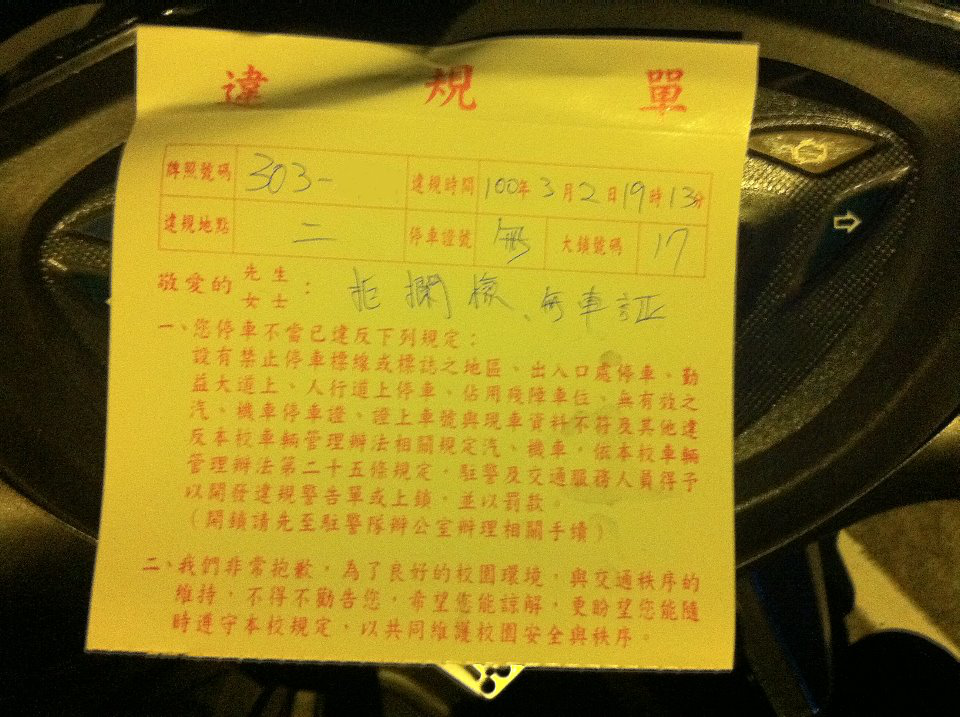 違規單
牌照號碼 303- 違規時間 100年3月2日19時13分
違規地點 二 停車證號 無 大鎖號碼 17
敬愛的先生女士: 拒攔檢、無車証
一、您停車不當已違反下列規定:
設有禁止停車標線或標誌之地區、出入口處停車、勤
益大道上、人行道上停車、佔用殘障車位、無有效之
汽、機車停車證、證上車號與現車資料不符及其他違
反本校車輛管理辦法相關規定汽、機車,依本校車輛
管理辦法第二十五條規定,駐警及交通服務人員得予
以開發違規警告單或上鎖,並以罰款。
(開鎖請先至駐警隊辦公室辦理相關手續)
二、我們非常抱歉,為了良好的校園環境,與交通秩序的
維持,不得不勸告您,希望您能諒解,更盼望您能隨
時遵守本校規定,以共同維護校園安全與秩序。